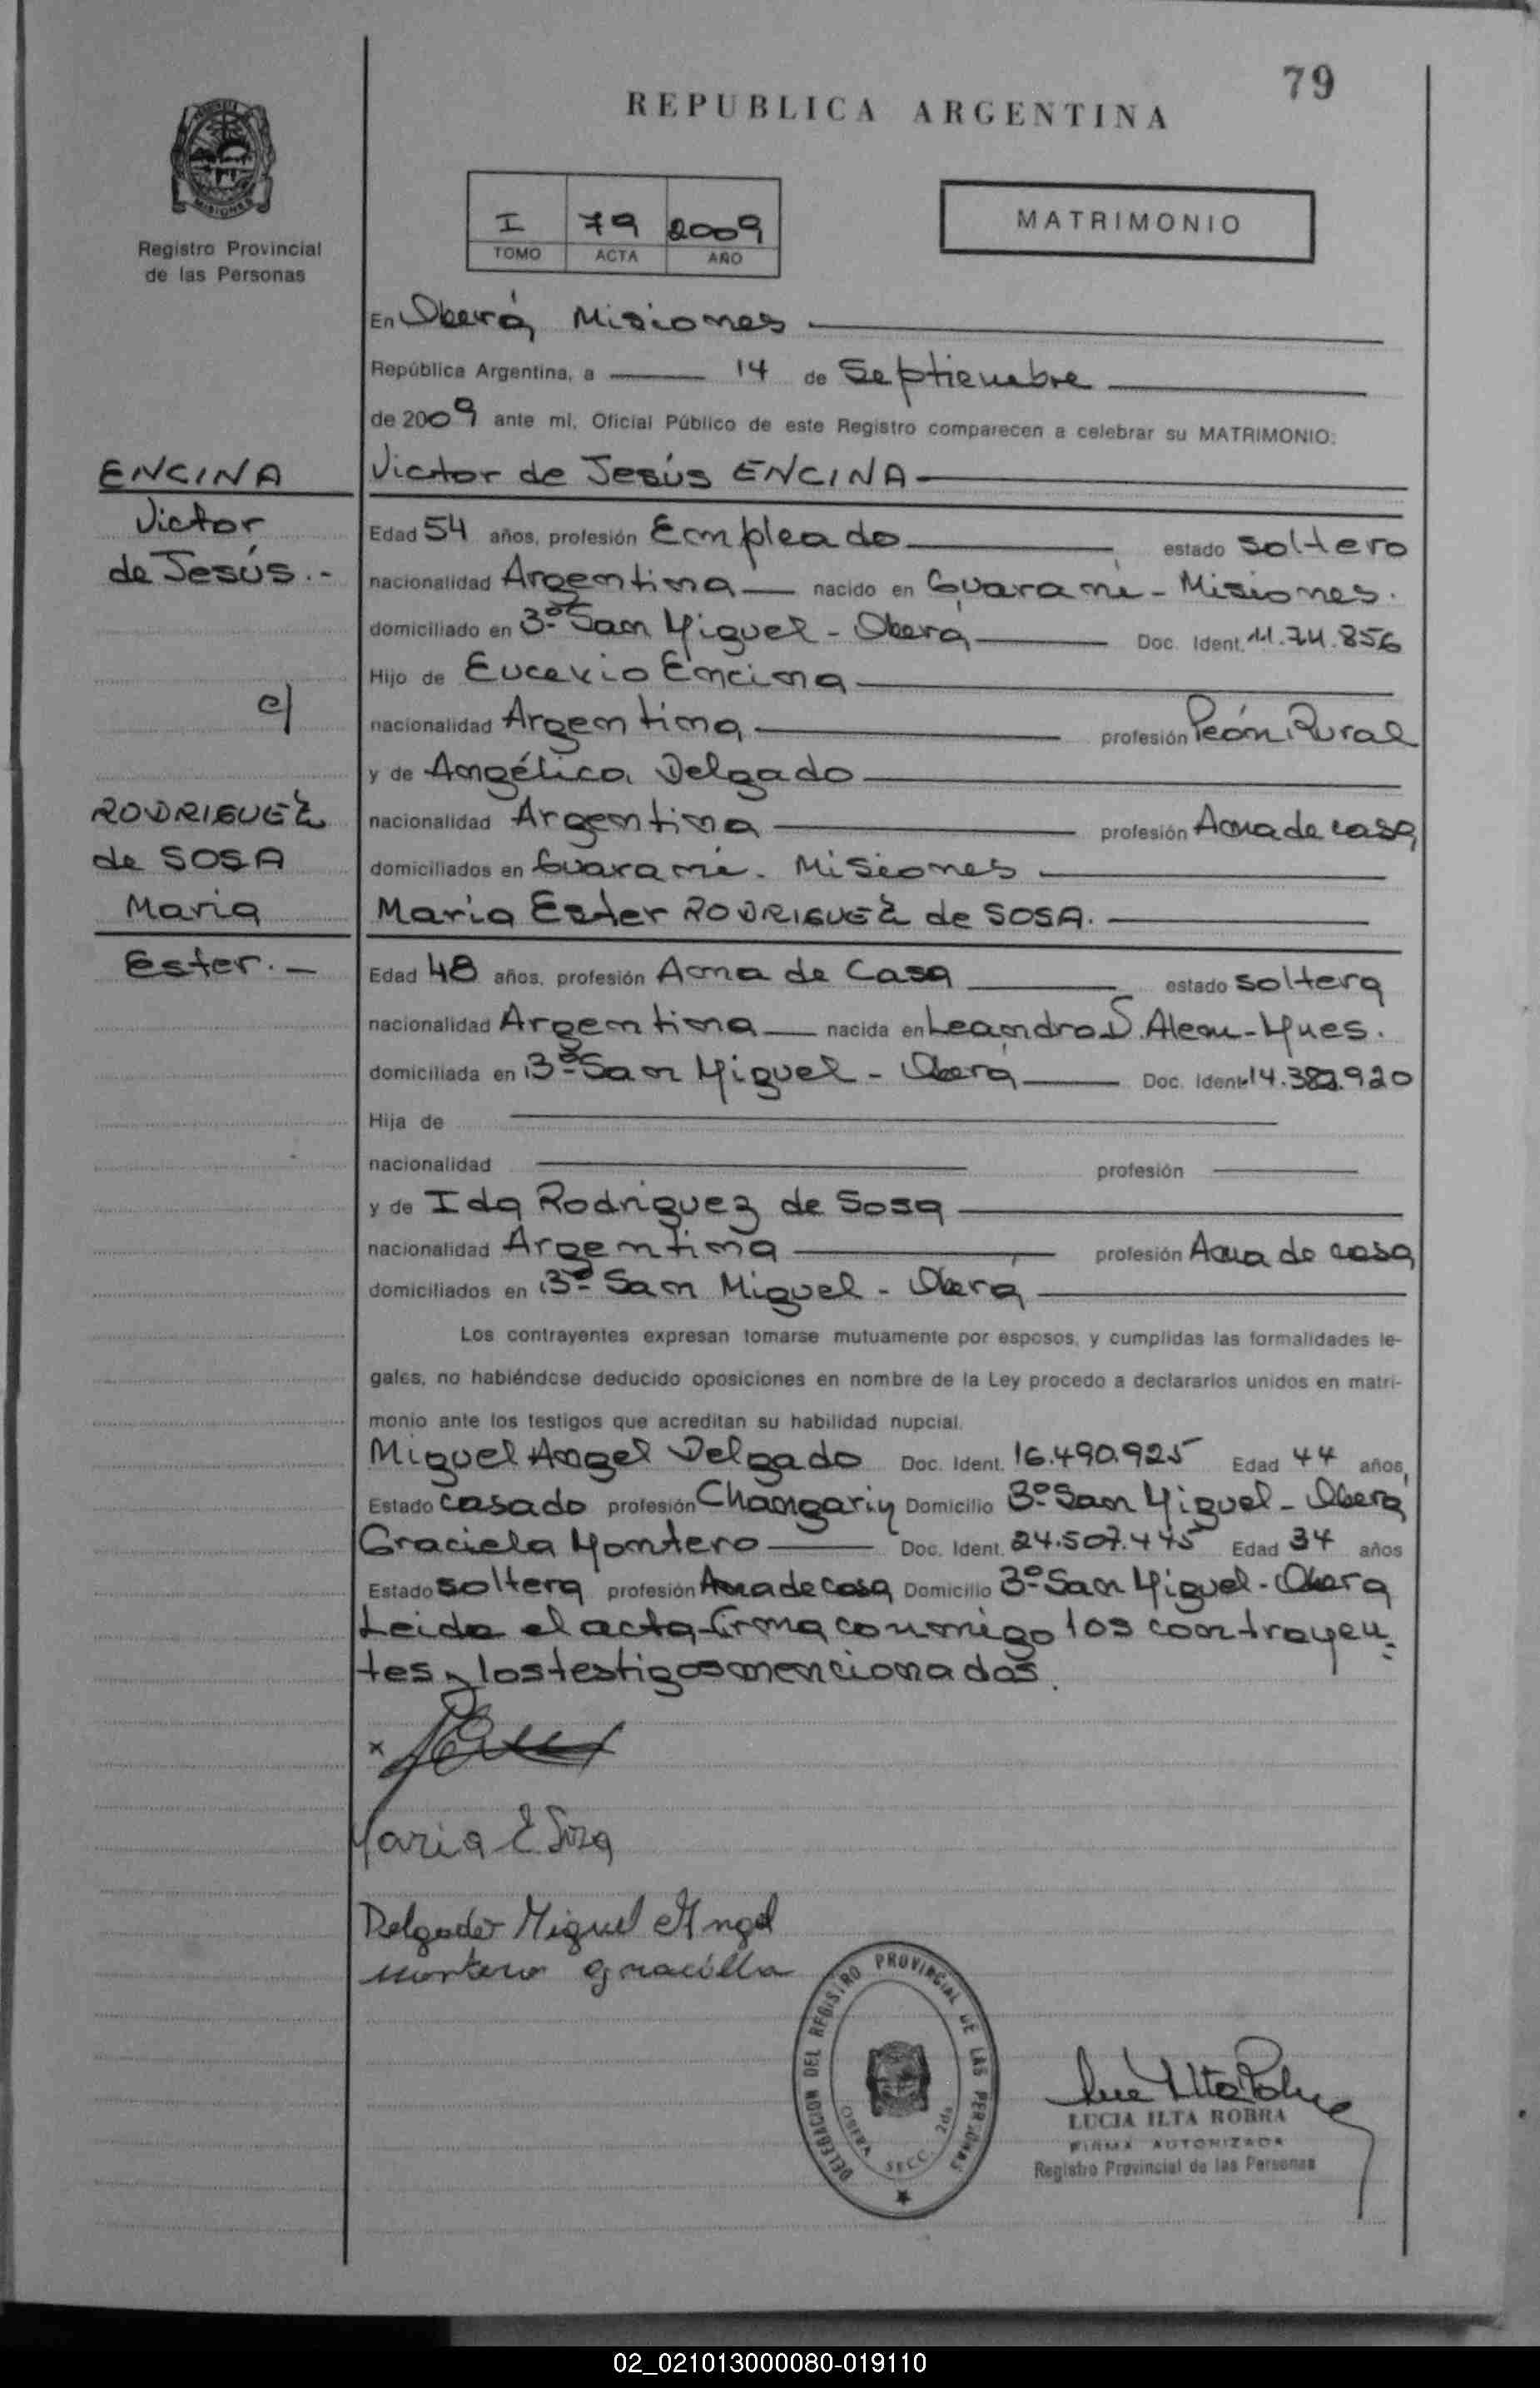 79
REPUBLICA ARGENTINA
MISIONES
Registro Provincial
de las Personas
I 79 2009
TOMO ACTA AÑO
MATRIMONIO
En Oberá, Misiones
República Argentina, a 14 de Septiembre
de 2009 ante mi, Oficial Público de este Registro comparecen a celebrar su MATRIMONIO:
ENCINA
Victor
de Jesús.-
c/
RODRIGUEZ
de SOSA
Maria
Ester.-
Victor de Jesús ENCINA
Edad 54 años, profesión Empleado estado soltero
nacionalidad Argentina nacido en Guaraní - Misiones.
domiciliado en 3º San Miguel - Oberá Doc. Ident. 11.74.856
Hijo de Eucevio Encina
nacionalidad Argentina profesión Peón Rural
y de Angélica Delgado
nacionalidad Argentina profesión Ama de casa
domiciliados en Guaraní - Misiones
Maria Ester RODRIGUEZ de SOSA.
Edad 48 años, profesión Ama de Casa estado soltera
nacionalidad Argentina nacida en Leandro N. Alem - Mnes.
domiciliada en 3º San Miguel - Oberá Doc. Ident. 14.382.920
Hija de
nacionalidad profesión
y de Ida Rodriguez de Sosa
nacionalidad Argentina profesión Ama de casa
domiciliados en 3º San Miguel - Oberá
Los contrayentes expresan tomarse mutuamente por esposos, y cumplidas las formalidades le-
gales, no habiéndose deducido oposiciones en nombre de la Ley procedo a declararlos unidos en matri-
monio ante los testigos que acreditan su habilidad nupcial.
Miguel Angel Delgado Doc. Ident. 16.490.925 Edad 44 años,
Estado casado profesión Changarin Domicilio 3º San Miguel - Oberá
Graciela Montero Doc. Ident. 24.507.445 Edad 34 años
Estado soltera profesión Ama de casa Domicilio 3º San Miguel - Oberá
Leida el acta firma conmigo los contrayen-
tes y los testigos mencionados.
x
Maria E Sosa
Delgado Miguel Angel
Montero Graciella
DELEGACION DEL REGISTRO PROVINCIAL DE LAS PERSONAS
OBERA SECC. 2da
LUCIA ILTA ROBRA
FIRMA AUTORIZADA
Registro Provincial de las Personas
02_021013000080-019110